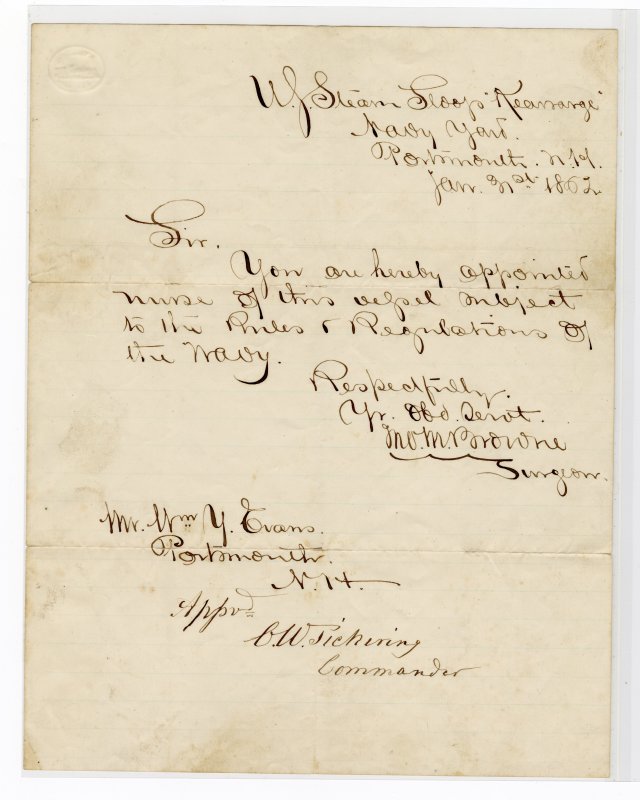 U.S. Steam Sloop "Kearsarge"
Navy Yard.
Portsmouth. N.H.
Jan. 31st 1862
Sir.
You are hereby appointed
nurse of this vessel subject
to the Rules & Regulations of
the Navy.
Respectfully.
Yr. Obd. Servt.
Jno. M. Browne
Surgeon.
Mr. Wm Y. Evans.
Portsmouth.
N. H.
Appvd
C. W. Pickering
Commander